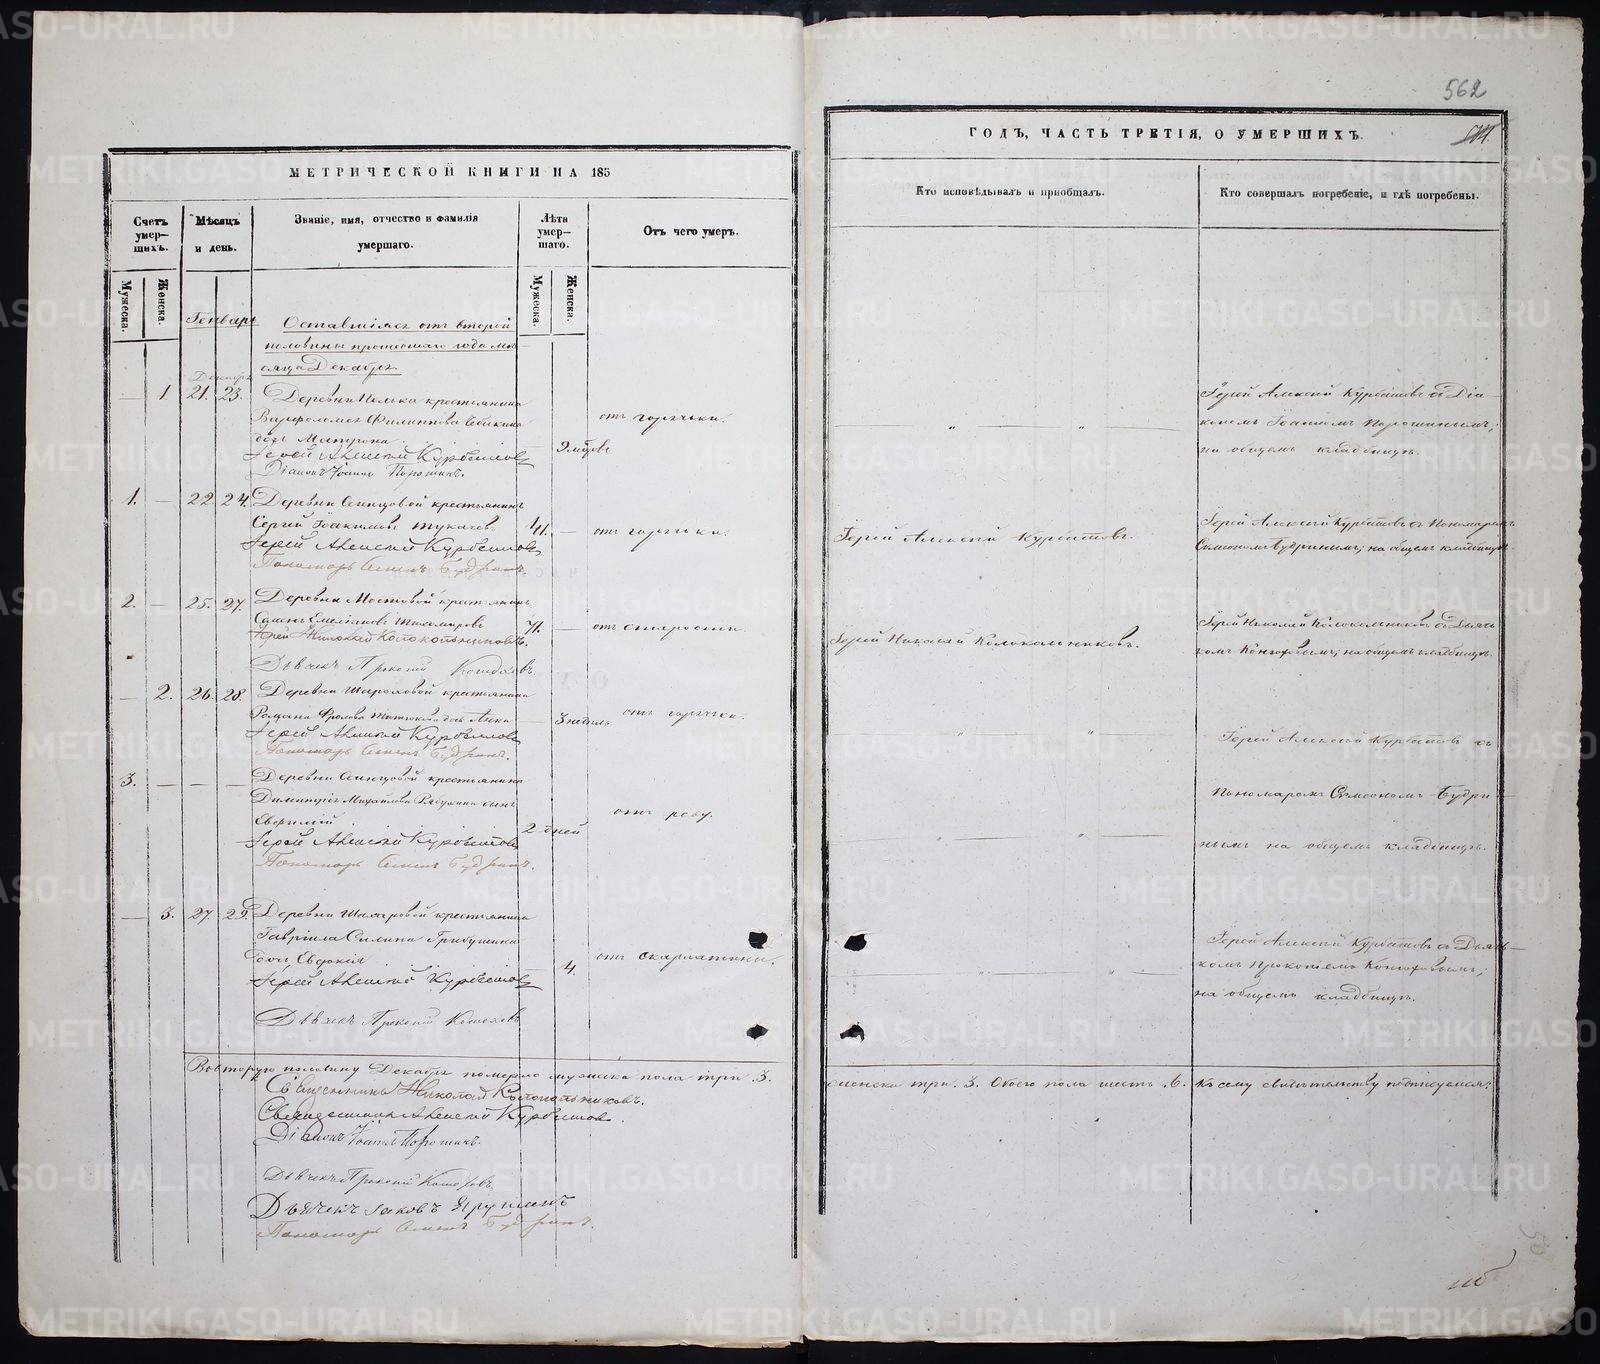 562
МЕТРИЧЕСКОЙ КНИГИ НА 185
Счетъ умер-
шихъ.
Мѣсяцъ
и день.
Званіе, имя, отчество и фамилія
умершаго.
Лѣта
умер-
шаго.
Отъ чего умеръ.
Мужеска.
Женска.
Мужеска.
Женска.
Генварь
Оставшіяся отъ второй
половины прошедшаго года мѣ-
сяца Декабря.
Декабрь
1 21. 23. Деревни крестьянина
Варѳоломея Филиппова
дочь Матрона
9 мѣсцовъ
отъ горячьки.
Іерей Алексѣй Курбатовъ
Діаконъ Іоаннъ Порошинъ.
1. — 22 24. Деревни крестьянинъ
Сергѣй Іоакимовъ
41. — отъ горячьки.
Іерей Алексѣй Курбатовъ
Пономарь Симеонъ Будринъ.
2. — 25. 27. Деревни Мостовой крестьянинъ
Емеліановъ Тихомировъ
71. — отъ старости
Іерей Николай Колокольниковъ.
Дьячекъ Прокопій
— 2. 26. 28. Деревни крестьянина
Романа Фролова дочь Анна
3 недѣль
отъ горячьки.
Іерей Алексѣй Курбатовъ
Пономарь Симеонъ Будринъ.
3. — — — Деревни крестьянина
Димитрія Михайлова сынъ
Евфимій
2 дней
отъ реву.
Іерей Алексѣй Курбатовъ
Пономарь Симеонъ Будринъ.
— 3. 27. 29. Деревни крестьянина
Гавріила Силина Грибушина
дочь Евдокія
4.
отъ скарлатины.
Іерей Алексѣй Курбатовъ
Дьячекъ Прокопій
Во вторую половину Декабря померло мужеска пола три. 3.
Священникъ Николай Колокольниковъ.
Священникъ Алексѣй Курбатовъ.
Діаконъ Іоаннъ Порошинъ.
Дьячекъ Прокопій
Дьячекъ Іаковъ
Пономарь Симеонъ Будринъ.
ГОДЪ, ЧАСТЬ ТРЕТІЯ, О УМЕРШИХЪ.
Кто исповѣдывалъ и пріобщалъ.
Кто совершалъ погребеніе, и гдѣ погребены.
Іерей Алексій Курбатовъ съ Діа-
кономъ Іоанномъ Порошинымъ;
на общемъ кладбищѣ.
Іерей Алексій Курбатовъ.
Іерей Алексій Курбатовъ съ Пономаремъ
Симеономъ Будринымъ; на общемъ кладбищѣ.
Іерей Николай Колокольниковъ.
Іерей Николай Колокольниковъ съ Дьяч-
комъ на общемъ кладбищѣ.
Іерей Алексій Курбатовъ съ
Пономаремъ Симеономъ Будри-
нымъ на общемъ кладбищѣ.
Іерей Алексій Курбатовъ съ Дьяч-
комъ Прокопіемъ
на общемъ кладбищѣ.
женска три. 3. Обоего пола шесть. 6. Къ сему свидѣтельству подписуемся:
METRIKI.GASO-URAL.RU